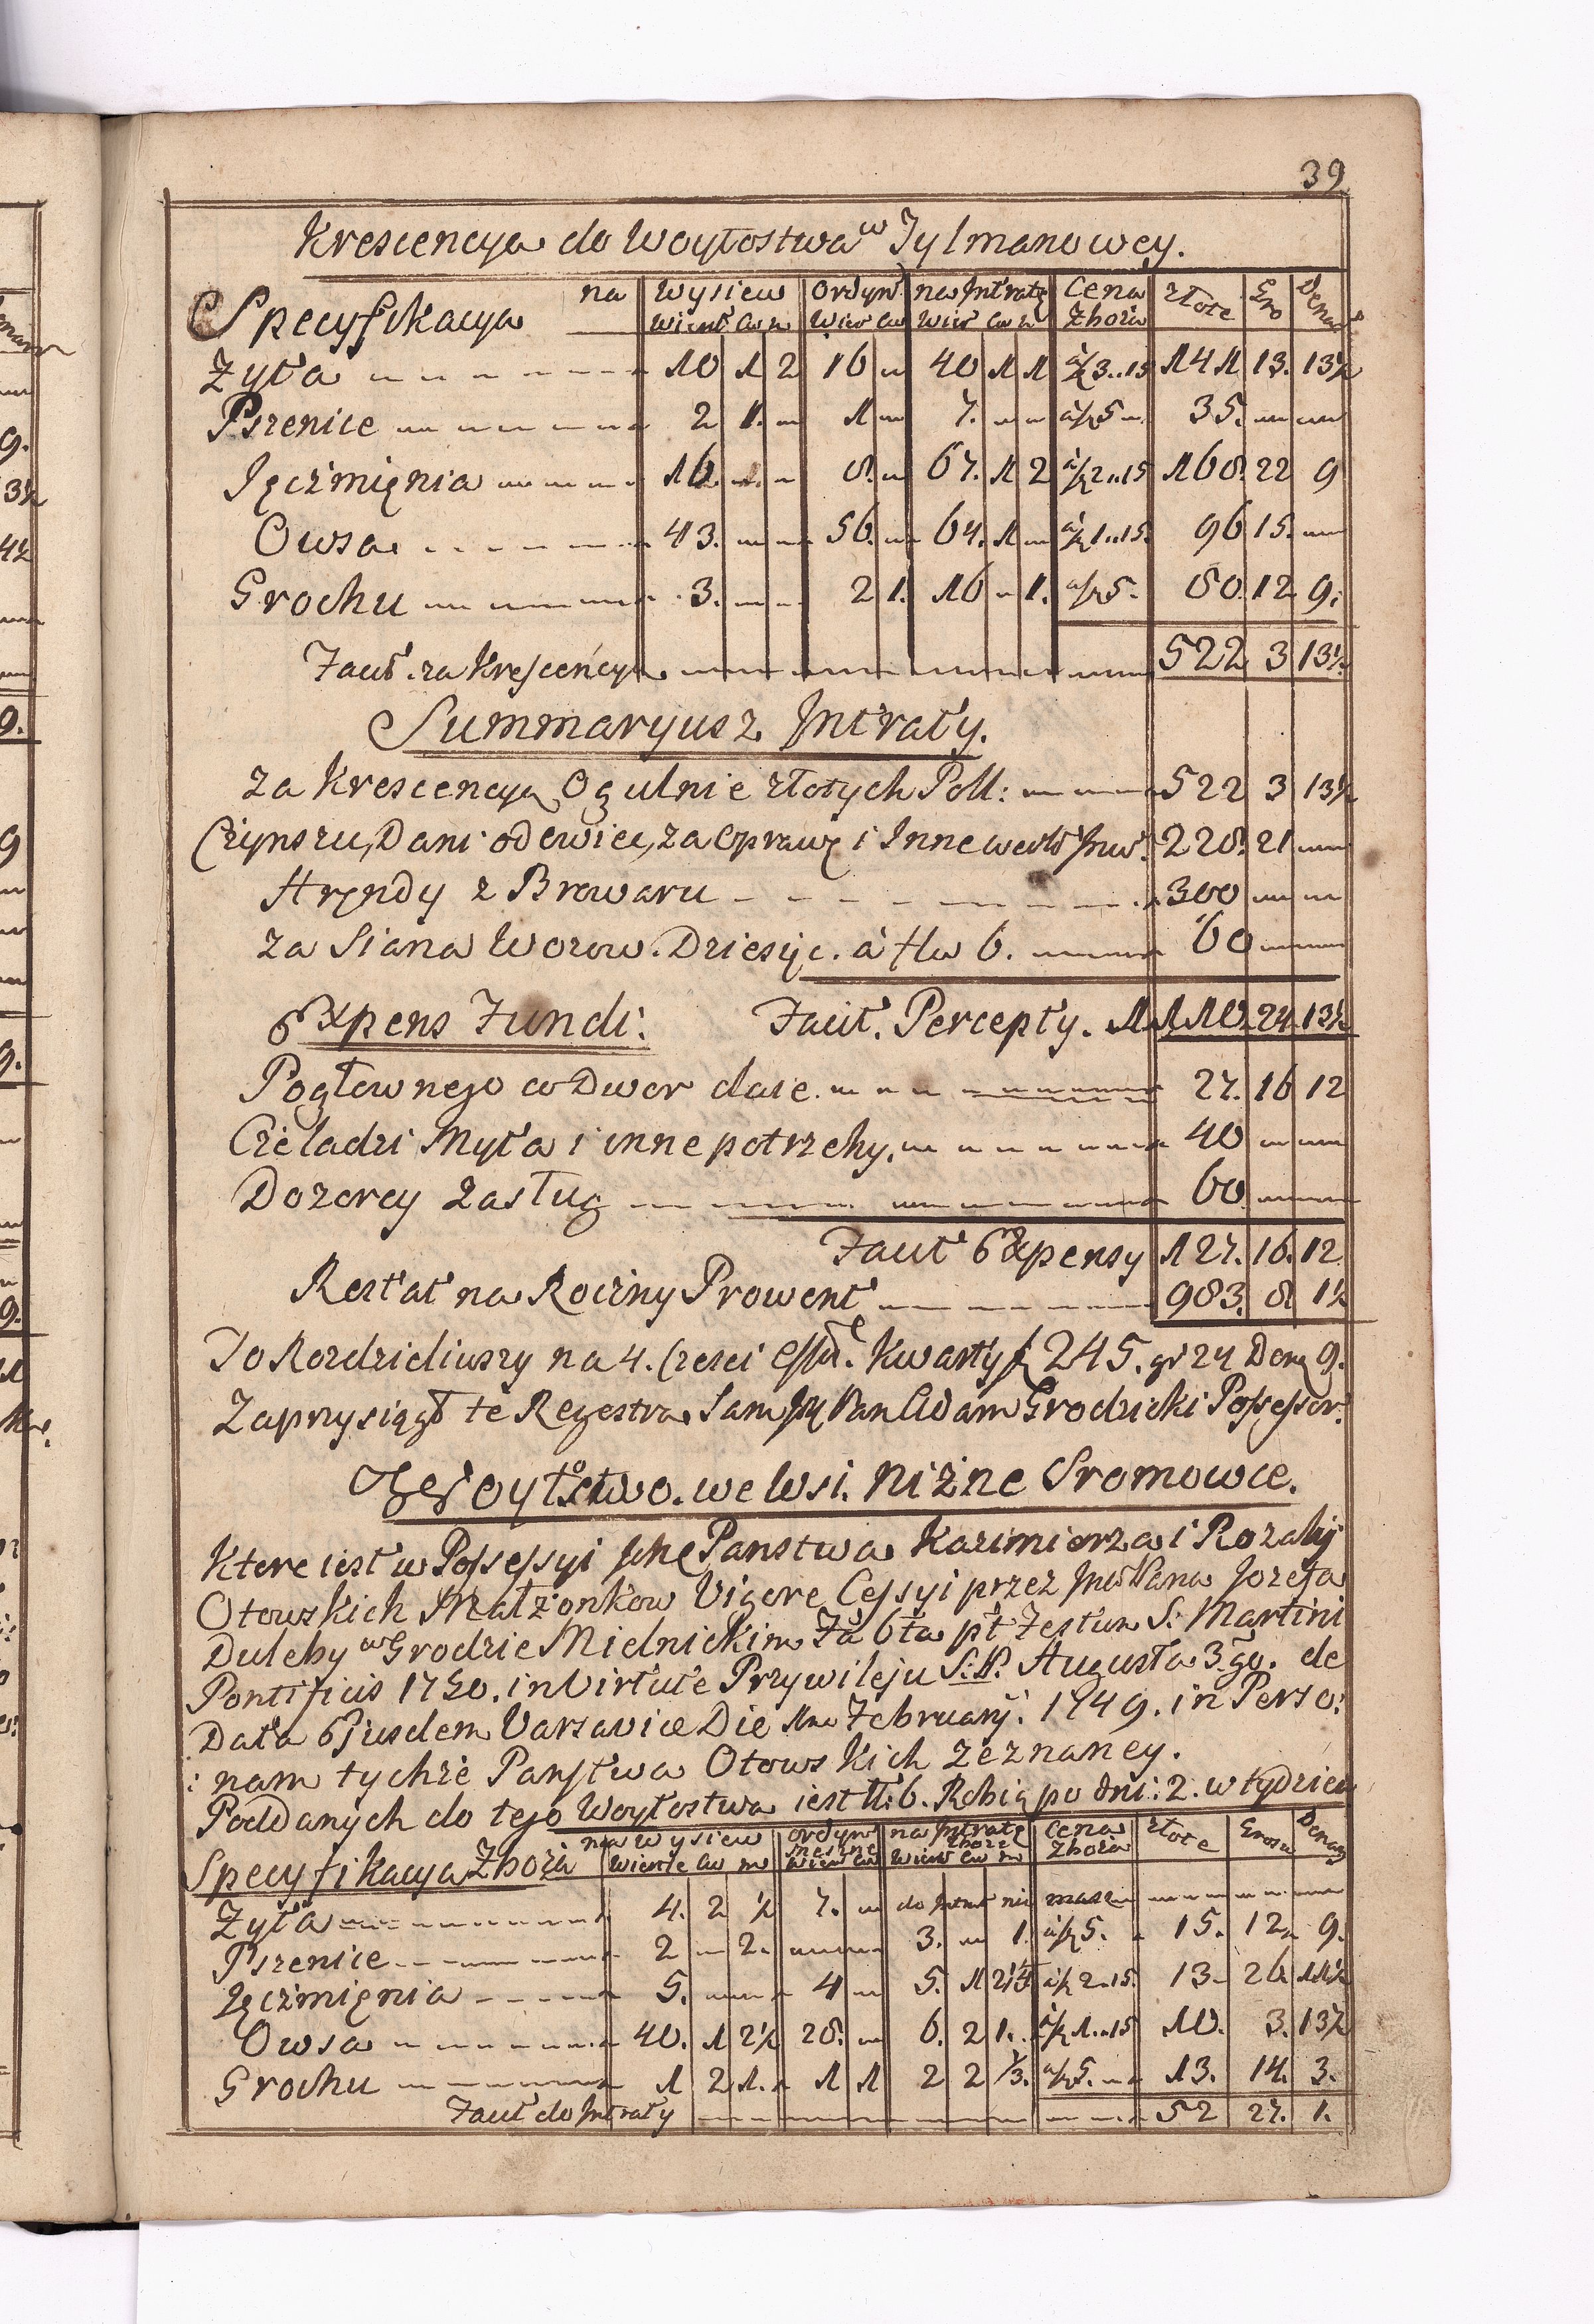 39
Krescencya do Woytostwa w Tylmanowey.
Specyfikacya na Wysiew Ordyn na Intratę Cena złote Gro Denar
Wiert Cw Wier Cw Wier Cw Zboża
Żyta 10 1 2 16 40 1 1 à ƶ 3..15 141 13. 13½
Pszenice 2 1. 1 7. à ƶ 5 35.
Ięczmięnia 16. 8. 67. 1 2 à ƶ 2..15 168. 22 9
Owsa 43. 56. 64. 1 à ƶ 1..15. 96 15.
Grochu 3. 2 1. 16 1. à ƶ 5. 80. 12 9.
Facit. za Krescencyą 522 3 13½
Summaryusz Intraty.
Za Krescencyą Ogulnie złotych Poll: 522 3 13½
Czynszu, Dani od owiec, za Oprawę i Inne 228. 21
Aręndy z Browaru 300
Za Siana Wozow. Dziesięc. à fl 6. 60
Expens Fundi: Facit. Percepty. 1110. 24. 13½
Pogłownego co Dwor daie 27. 16 12
Czeladzi Myta i inne potrzeby. 40
Dozorcy Zasług 60
Facit Expensy 127. 16. 12
Restat na Roczny Prowent 983. 8. 1½
To Rozdzieliwszy na 4. Części Kwarty ƶ 245. gr 24 Den 9.
Zaprzysiągł te Regestra Sam Pan Adam Grodzicki Possessor.
Woytostwo. we Wsi. Niżne Sromowce.
Ktore iest w Possessyi Państwa Kazimierza i Rozalij
Otowskich Małżonkow Vigore Cessyi przez Pana Jozefa
Duleby w Grodzie Mielnickim Fa 6ta pt Festum S. Martini
Pontificis 1750. in Virtute Przywileju S: K. Augusta 3go. de
Data Ejusdem Varsaviæ Die 1ma Februarij. 1749. in Perso:
: nam tychże Państwa Otowskich zeznaney.
Poddanych do tego Woytostwa iest N. 6. Robią po dni: 2. w tydzien
Specyfikacya Zboża na Wysiew Ordyn na Intratę Cena złote Grosze Denar
Wierte Cw Wier Cw zboże Wier Cw Zboża
Żyta 4. 2 ½ 7. do nie masz
Pszenice 2 2. 3. 1. à ƶ 5. 15. 12. 9.
Ięczmięnia 5. 4 5. 1 2¼ à ƶ 2..15. 13. 26. 11½
Owsa 40. 1 2½ 28. 6. 2 1. à ƶ 1..15 10. 3. 13½
Grochu 1 2 1. 1 1 2 2 ⅓. à ƶ 5. 13. 14. 3.
Facit do Intraty 52 27. 1.